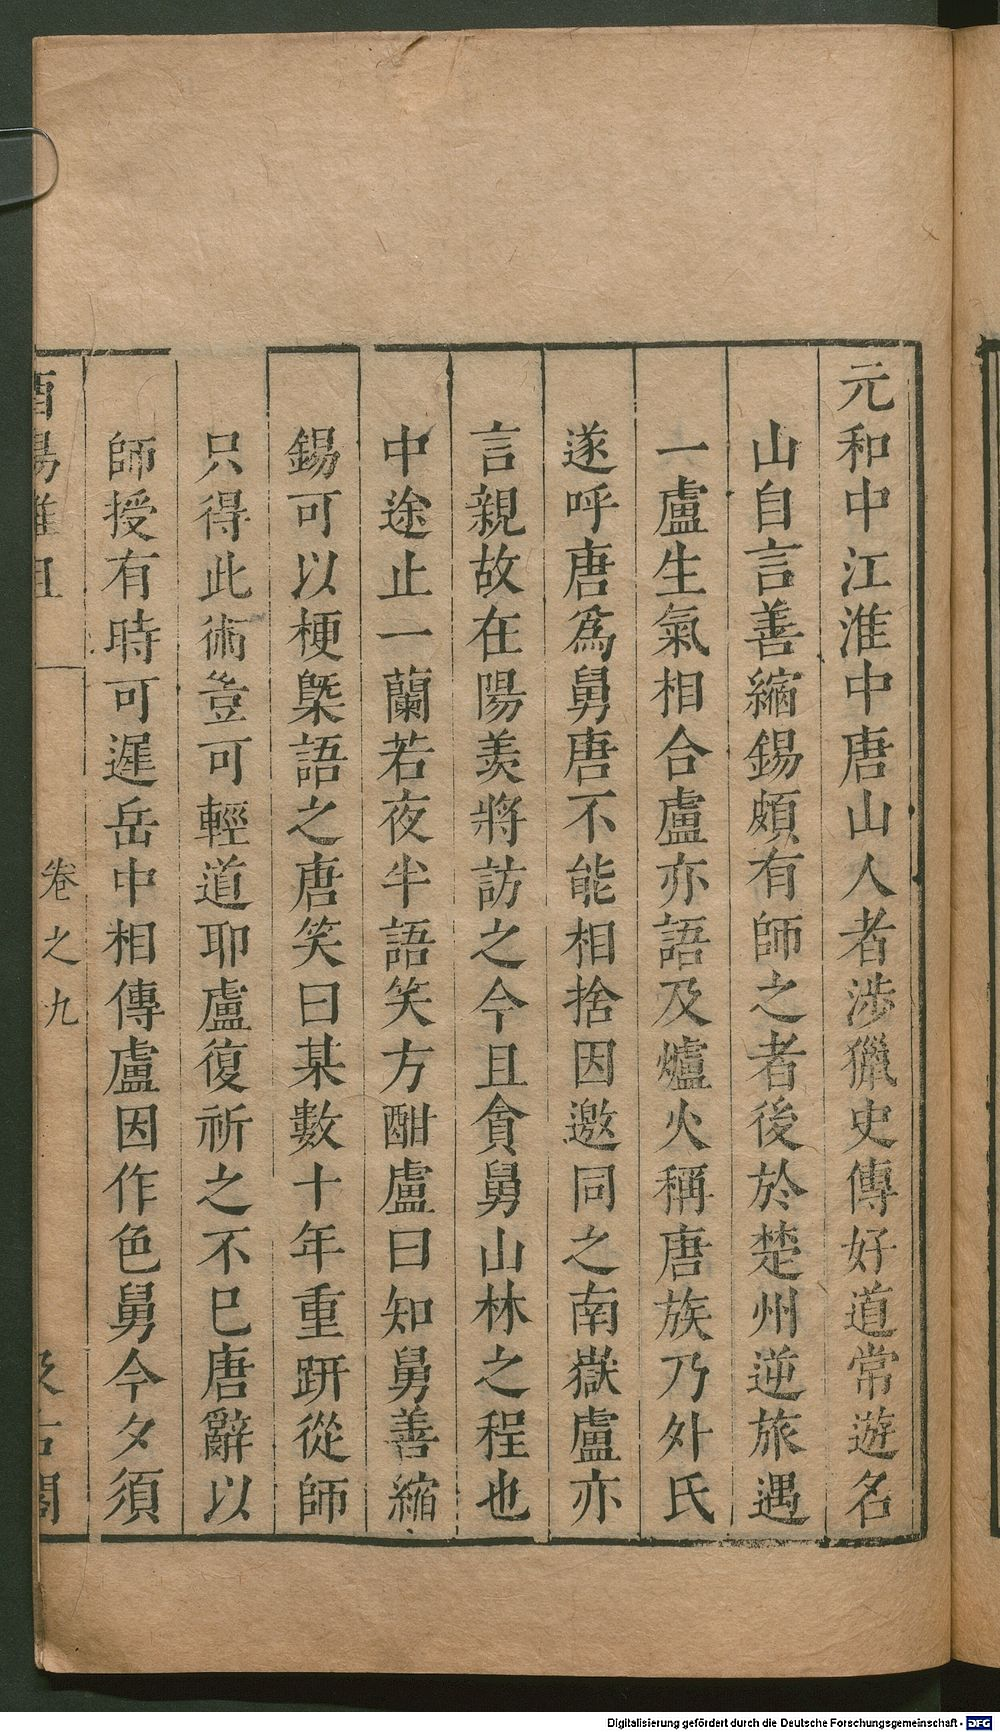 元和中江淮中唐山人者涉獵史傳好道常遊名
山自言善縮錫頗有師之者後於楚州逆旅遇
一盧生氣相合盧亦語及爐火稱唐族乃外氏
遂呼唐爲舅唐不能相捨因邀同之南嶽盧亦
言親故在陽羨將訪之今且貪舅山林之程也
中途止一蘭若夜半語笑方酣盧曰知舅善縮
錫可以梗槩語之唐笑曰某數十年重趼從師
只得此術豈可輕道耶盧復祈之不已唐辭以
師授有時可遲岳中相傳盧因作色舅今夕須
酉陽雜俎 卷之九 汲古閣
Digitalisierung gefördert durch die Deutsche Forschungsgemeinschaft - DFG